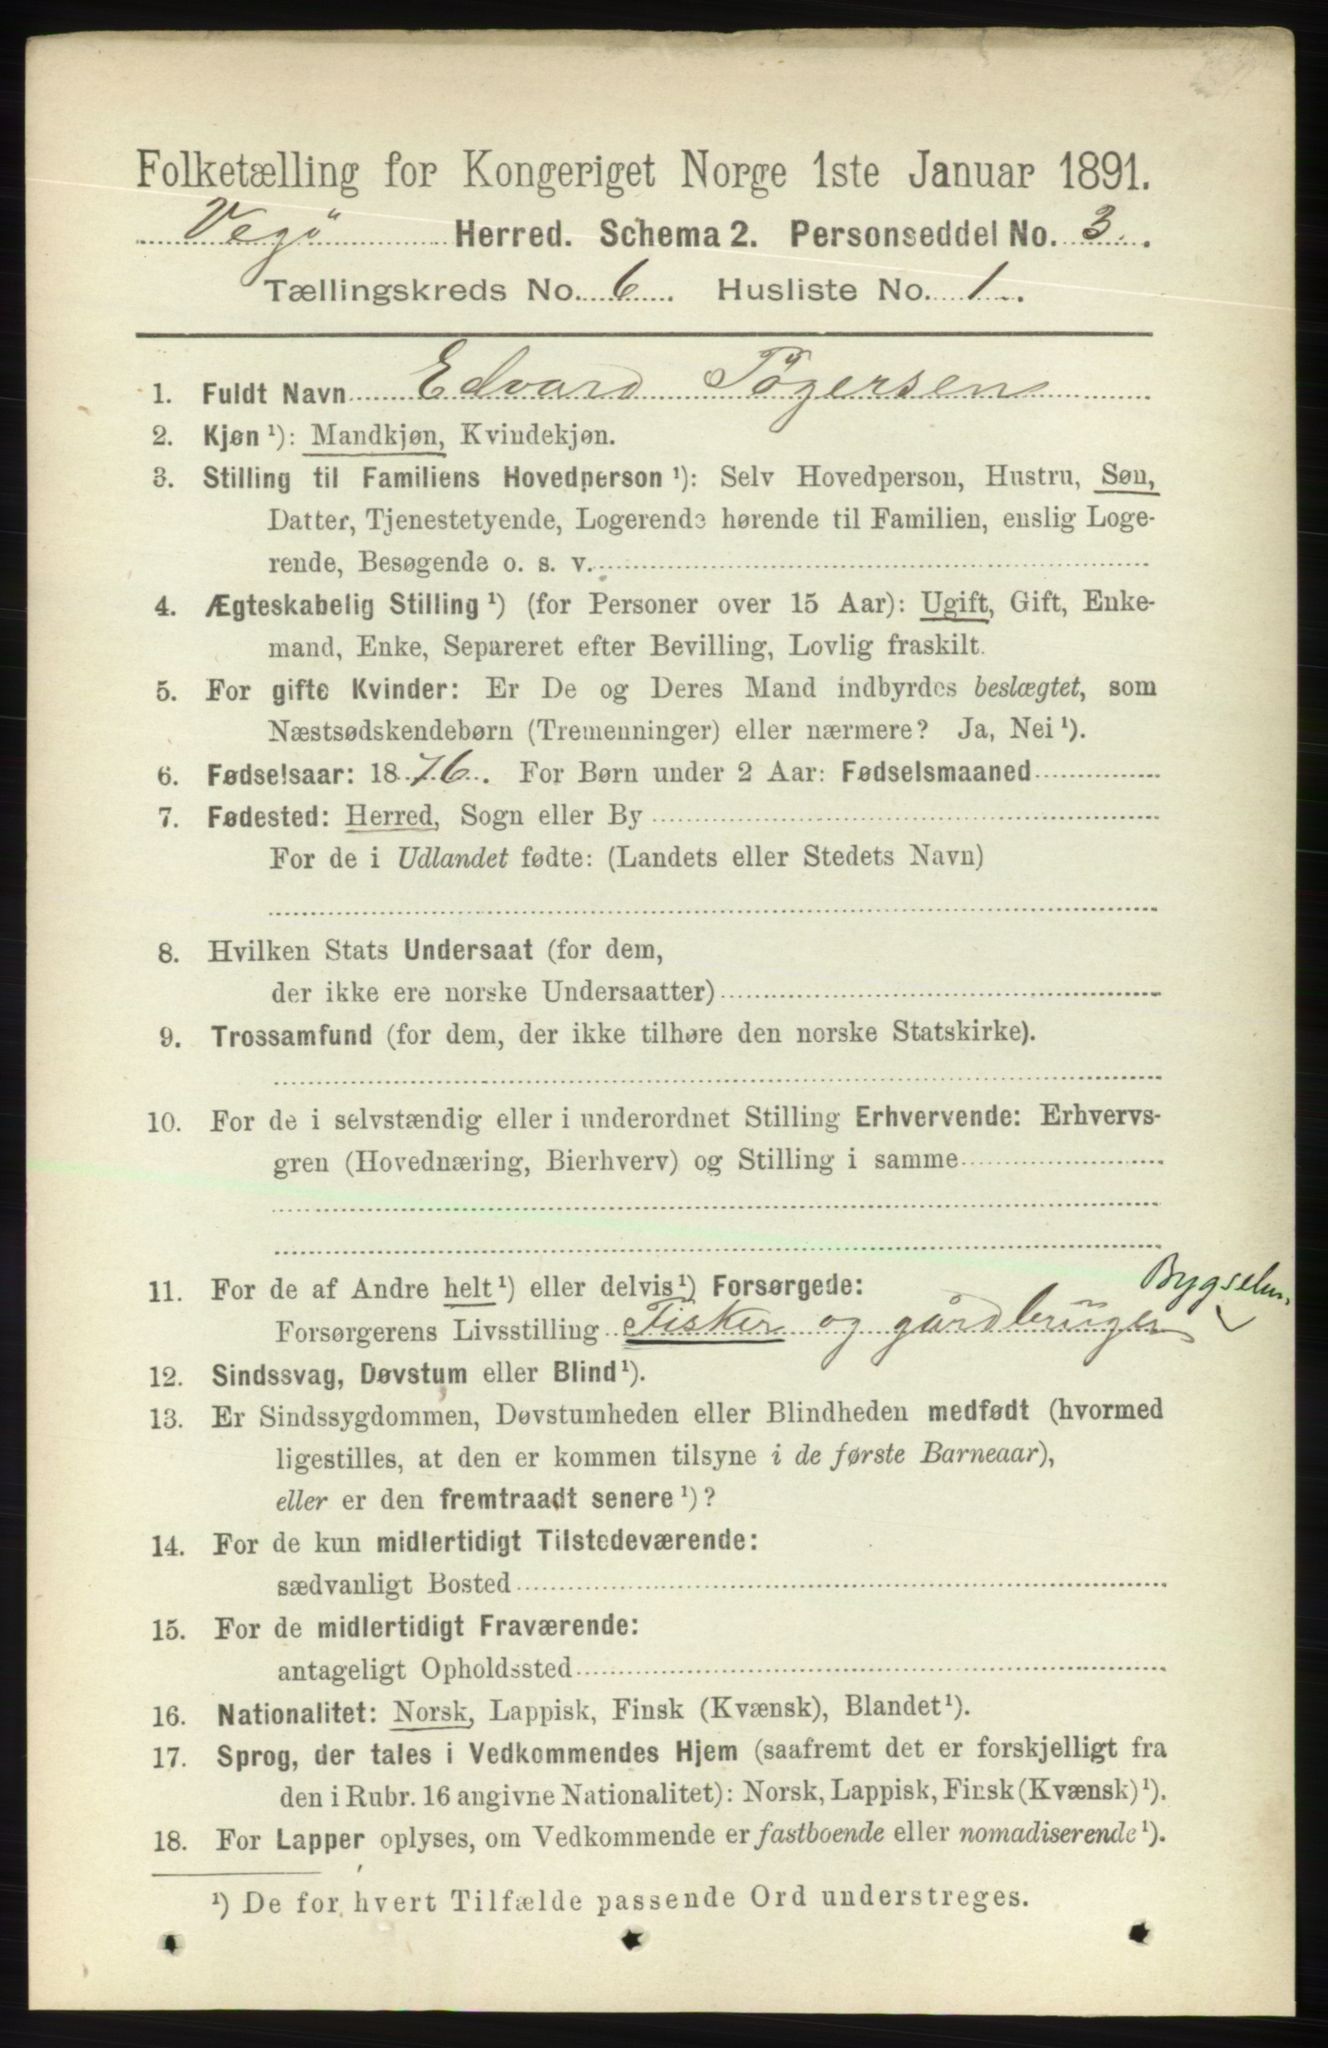 Folketælling for Kongeriget Norge 1ste Januar 1891.
Vegö Herred. Schema 2. Personseddel No. 3.
Tællingskreds No. 6. Husliste No. 1.
1. Fuldt Navn Edvard Tögersen
2. Kjøn ¹): Mandkjøn, Kvindekjøn.
3. Stilling til Familiens Hovedperson ¹): Selv Hovedperson, Hustru, Søn,
Datter, Tjenestetyende, Logerende hørende til Familien, enslig Loge-
rende, Besøgende o. s. v.
4. Ægteskabelig Stilling ¹) (for Personer over 15 Aar): Ugift, Gift, Enke-
mand, Enke, Separeret efter Bevilling, Lovlig fraskilt.
5. For gifte Kvinder: Er De og Deres Mand indbyrdes beslægtet, som
Næstsødskendebørn (Tremenninger) eller nærmere? Ja, Nei ¹).
6. Fødselsaar: 1876. For Børn under 2 Aar: Fødselsmaaned
7. Fødested: Herred, Sogn eller By
For de i Udlandet fødte: (Landets eller Stedets Navn)
8. Hvilken Stats Undersaat (for dem,
der ikke ere norske Undersaatter)
9. Trossamfund (for dem, der ikke tilhøre den norske Statskirke).
10. For de i selvstændig eller i underordnet Stilling Erhvervende: Erhvervs-
gren (Hovednæring, Bierhverv) og Stilling i samme
Bygselm.
11. For de af Andre helt ¹) eller delvis ¹) Forsørgede:
Forsørgerens Livsstilling Fisker og gårdbruger
12. Sindssvag, Døvstum eller Blind ¹).
13. Er Sindssygdommen, Døvstumheden eller Blindheden medfødt (hvormed
ligestilles, at den er kommen tilsyne i de første Barneaar),
eller er den fremtraadt senere ¹)?
14. For de kun midlertidigt Tilstedeværende:
sædvanligt Bosted
15. For de midlertidigt Fraværende:
antageligt Opholdssted
16. Nationalitet: Norsk, Lappisk, Finsk (Kvænsk), Blandet ¹).
17. Sprog, der tales i Vedkommendes Hjem (saafremt det er forskjelligt fra
den i Rubr. 16 angivne Nationalitet): Norsk, Lappisk, Finsk (Kvænsk) ¹).
18. For Lapper oplyses, om Vedkommende er fastboende eller nomadiserende ¹).
¹) De for hvert Tilfælde passende Ord understreges.